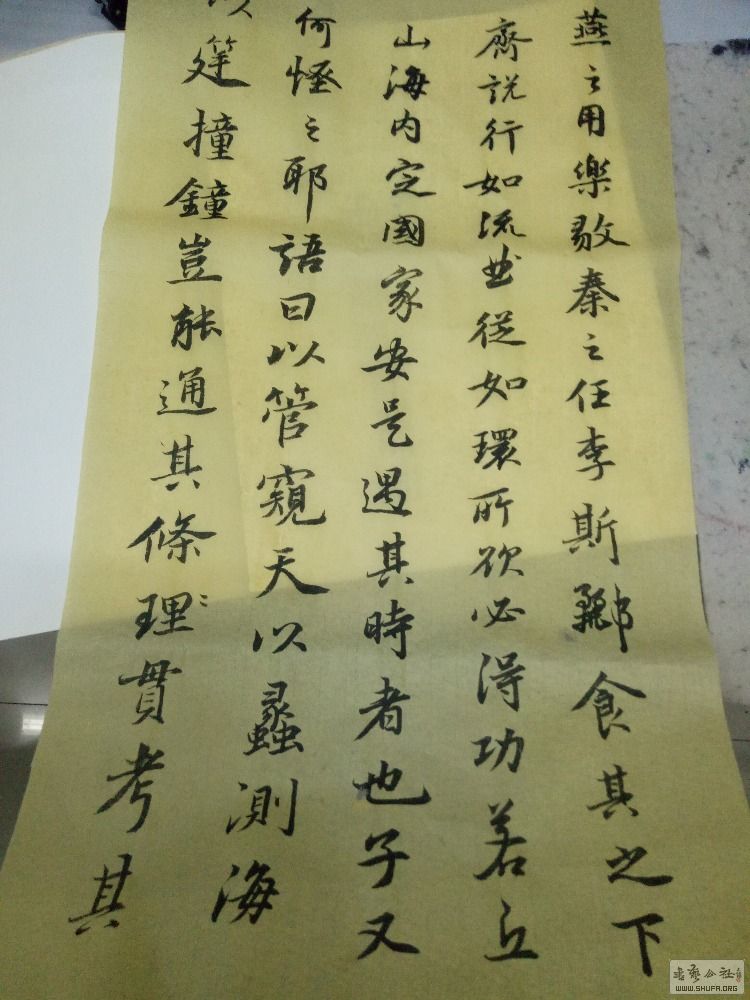 燕之用樂毅秦之任李斯酈食其之下
齊說行如流曲從如環所欲必得功若丘
山海内定國家安是遇其時者也子又
何怪之耶語曰以管窺天以蠡測海
以筳撞鐘豈能通其條理貫考其
書藝公社
WWW.SHUFA.ORG